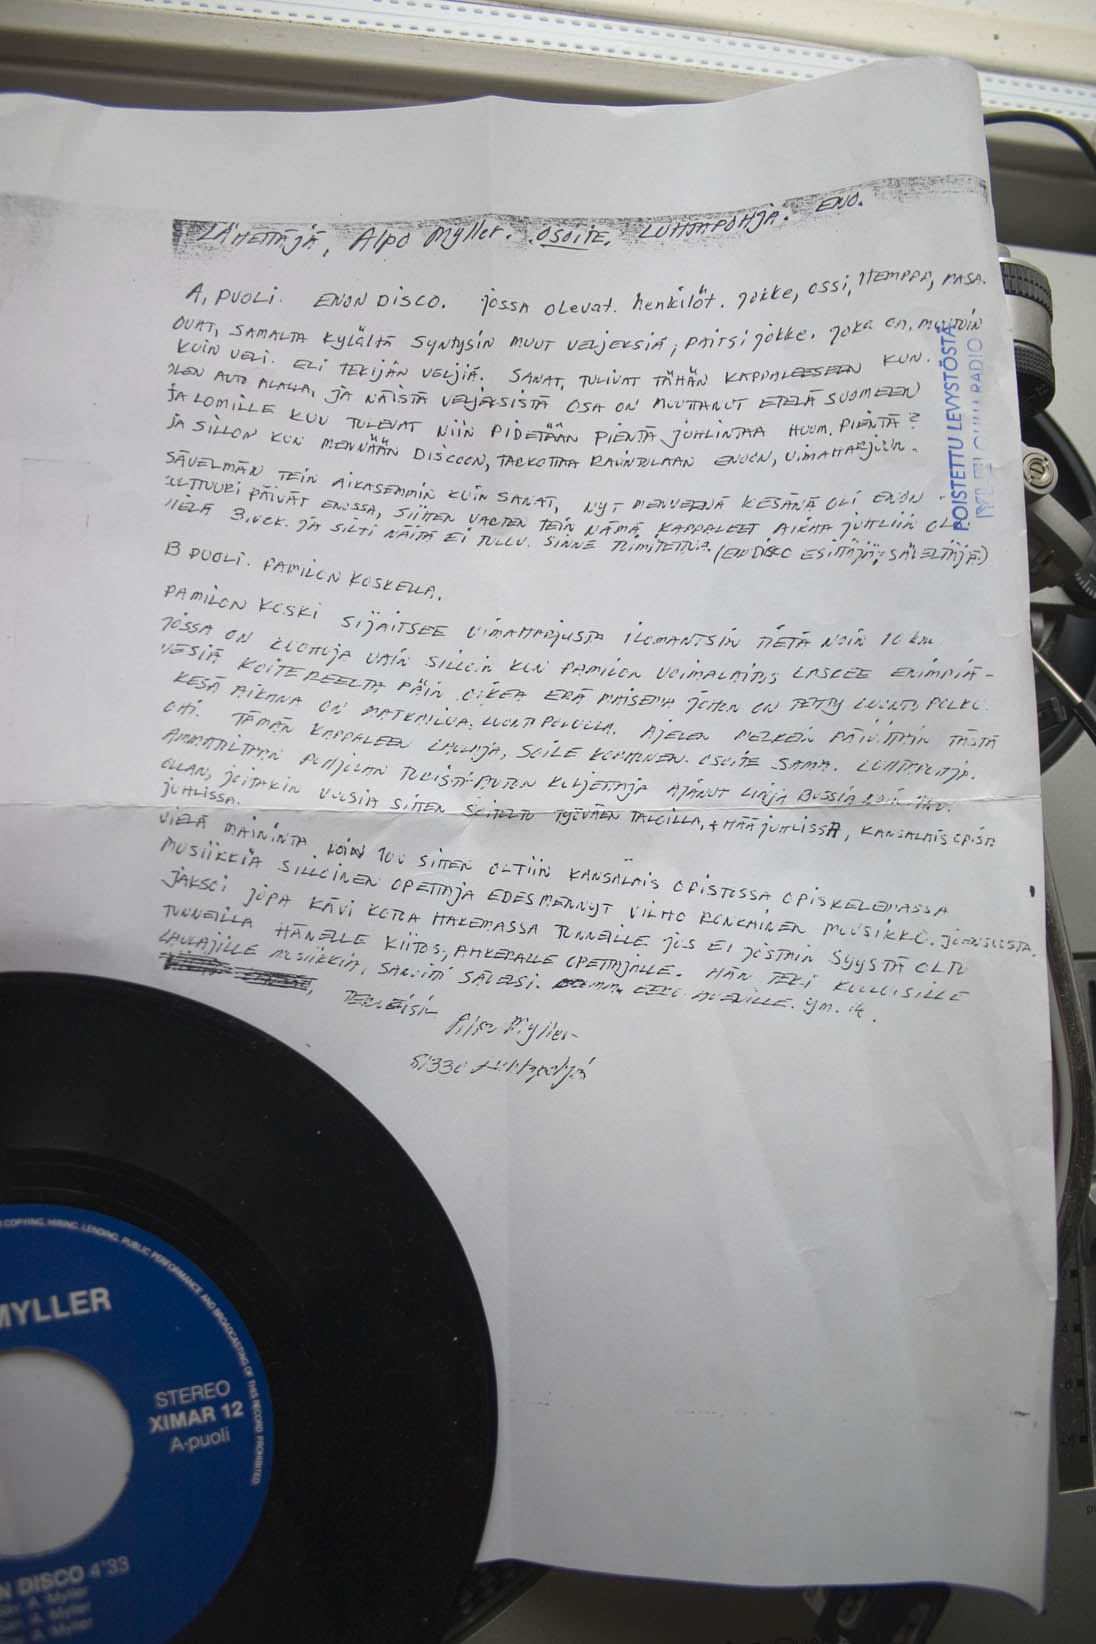 LÄHETTÄJÄ, Alpo Myller. OSOITE. LUHTAPOHJA. ENO.
A, PUOLI. ENON DISCO. jossa olevat. henkilöt. jokke, ossi, HEMPPA, PASA.
OVAT, SAMALTA KYLÄLTÄ SYNTYSIN MUUT VELJEKSIÄ, PAITSI JOKKE. joka on, MUUTOIN
KUIN VELI. ELI TEKIJÄN VELJIÄ. SANAT, TULIVAT TÄHÄN KAPPALEESEEN KUN.
OLEN AUTO ALALLA, JA NÄISTÄ VELJEKSISTÄ OSA ON MUUTTANUT ETELÄ SUOMEEN
JA LOMILLE KUN TULEVAT NIIN PIDETÄÄN PIENTÄ JUHLINTAA HUOM. PIENTÄ?
JA SILLON KUN MENNÄÄN DISCOON, TARKOTTAA RAVINTOLAAN ENOON, UIMAHARJUUN.
SÄVELMÄN TEIN AIKASEMMIN KUIN SANAT, NYT MENNEENÄ KESÄNÄ OLI ENON
KULTTUURI PÄIVÄT ENOSSA, SIIHEN VARTEN TEIN NÄMÄ KAPPALEET AIKAA JUHLIIN OLI
VIELÄ 3. VCK. JA SILTI NÄITÄ EI TULLU. SINNE TOIMITETTUA. (ENDISCO ESITTÄJÄ: SÄVELTÄJÄ.)
B PUOLI. PAMILON KOSKELLA.
PAMILON KOSKI SIJAITSEE UIMAHARJUSTA ILOMANTSIN TIETÄ NOIN 10 km.
JOSSA ON KUOHUJA VAIN SILLOIN KUN PAMILON VOIMALAITOS LASKEE ENIMPIÄ-
VESIÄ KOITEREELTA PÄIN OIKEA ERÄ MAISEMA JOHON ON TEHTY LUONTO POLKU.
KESÄ AIKANA ON MATKAILUA. LUONTOPOLULLA. AJELEN MELKEIN PÄIVITTÄIN TÄSTÄ
OHI. TÄMÄN KAPPALEEN LAULAJA, SOILE KORHONEN. OSOITE SAMA. LUHTAPOHJA.
AMMATILTAAN POHJOLAN TURISTIAUTON KULJETTAJA AJANUT LINJA BUSSIA
OLLAN, JOITAKIN VUOSIA SITTEN SOITELTU TYÖVÄEN TALOILLA, + HÄÄ JUHLISSA, KANSALAIS OPISTO
JUHLISSA.
VIELÄ MAININTA NOIN 10V SITTEN OLTIIN KANSALAIS OPISTOSSA OPISKELEMASSA
MUSIIKKIA SILLOINEN OPETTAJA EDESMENNYT VILHO RONKAINEN MUUSIKKO. JOENSUUSTA.
JAKSOI JOPA KÄVI KOTOA HAKEMASSA TUNNEILLE JOS EI JOSTAIN SYYSTÄ OLTU
TUNNEILLA HÄNELLE KIITOS, AHKERALLE OPETTAJALLE. HÄN TEKI KUULUISILLE
LAULAJILLE MUSIIKKIA, SANOITTI SÄVELSI. EERO AVENILLE. ym. it.
TERVEISIN
Alpo Myller
81330 Luhtapohja
POISTETTU LEVYSTÖSTÄ
RADIO
COPYING, HIRING, LENDING, PUBLIC PERFORMANCE AND BROADCASTING OF THIS RECORD PROHIBITED
MYLLER
STEREO
XIMAR 12
A-puoli
N DISCO 4'33
A. Myller
A. Myller
A. Myller